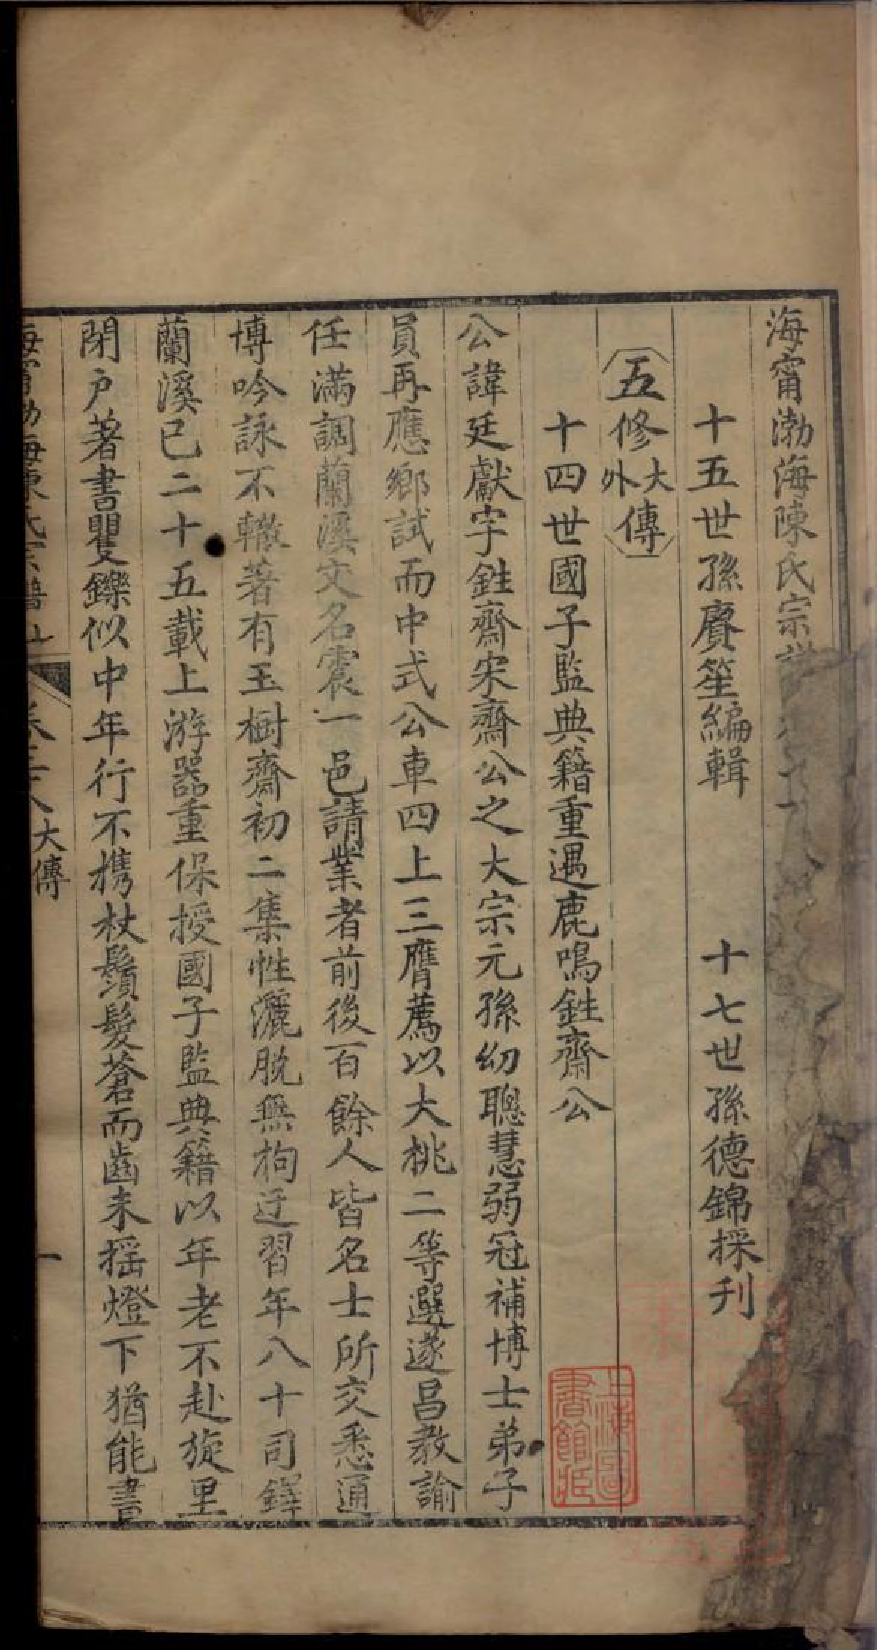 海甯渤海陳氏宗譜
十五世孫賡笙編輯 十七世孫德錦採刋
五修大外傳
十四世國子監典籍重遇鹿鳴鉎齋公
公諱廷獻字鉎齋宋齋公之大宗元孫幼聰慧弱冠補博士弟子
員再應鄉試而中式公車四上三膺薦以大桃二等選遂昌教諭
任滿調蘭溪文名震一邑請業者前後百餘人皆名士所交悉通
博吟詠不輟著有玉樹齋初二集性灑脫無拘迂習年八十司鐸
蘭溪已二十五載上游器重保授國子監典籍以年老不赴旋里
閉户著書矍鑠似中年行不携杖鬚髮蒼而齒未摇燈下猶能書
海甯渤海陳氏宗譜 大傳 一
上海圖書館臧